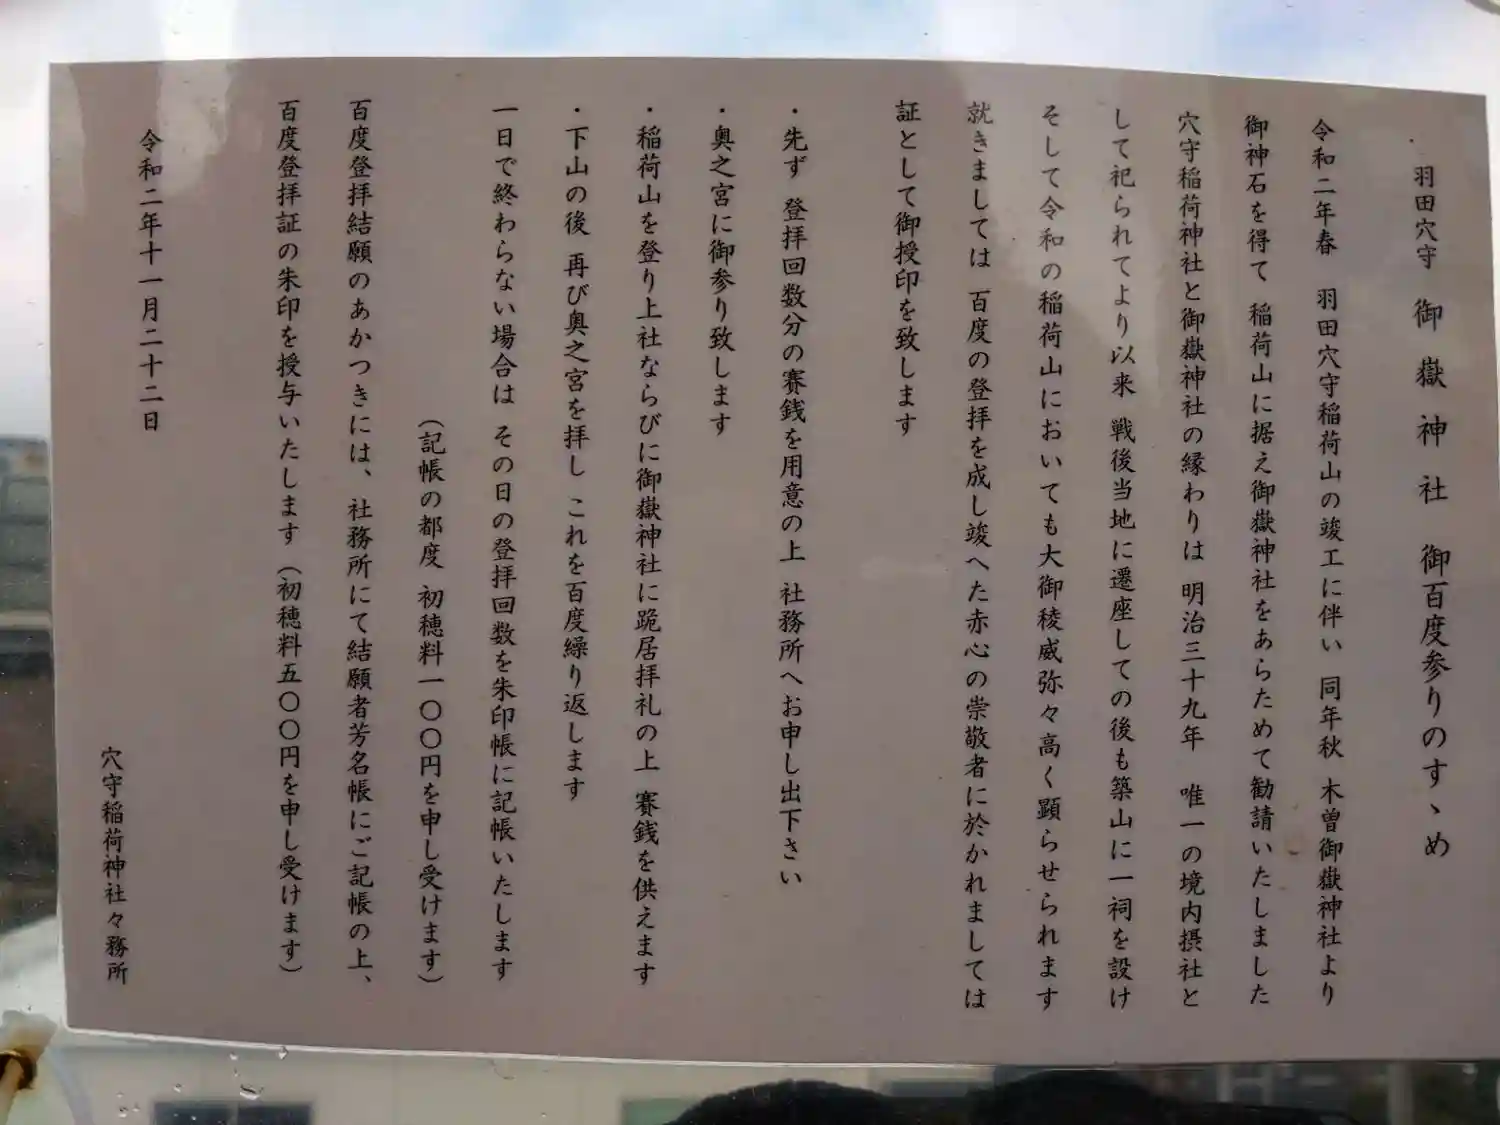 羽田穴守 御嶽神社 御百度参りのすゝめ
令和二年春 羽田穴守稲荷山の竣工に伴い 同年秋 木曽御嶽神社より
御神石を得て 稲荷山に据え御嶽神社をあらためて勧請いたしました
穴守稲荷神社と御嶽神社の縁わりは 明治三十九年 唯一の境内摂社と
して祀られてより以来 戦後当地に遷座しての後も築山に一祠を設け
そして令和の稲荷山においても大御稜威弥々高く顕らせられます
就きましては 百度の登拝を成し竣へた赤心の崇敬者に於かれましては
証として御授印を致します
・先ず 登拝回数分の賽銭を用意の上 社務所へお申し出下さい
・奥之宮に御参り致します
・稲荷山を登り上社ならびに御嶽神社に跪居拝礼の上 賽銭を供えます
・下山の後 再び奥之宮を拝し これを百度繰り返します
一日で終わらない場合は その日の登拝回数を朱印帳に記帳いたします
（記帳の都度 初穂料一〇〇円を申し受けます）
百度登拝結願のあかつきには、社務所にて結願者芳名帳にご記帳の上、
百度登拝証の朱印を授与いたします（初穂料五〇〇円を申し受けます）
令和二年十一月二十二日
穴守稲荷神社々務所